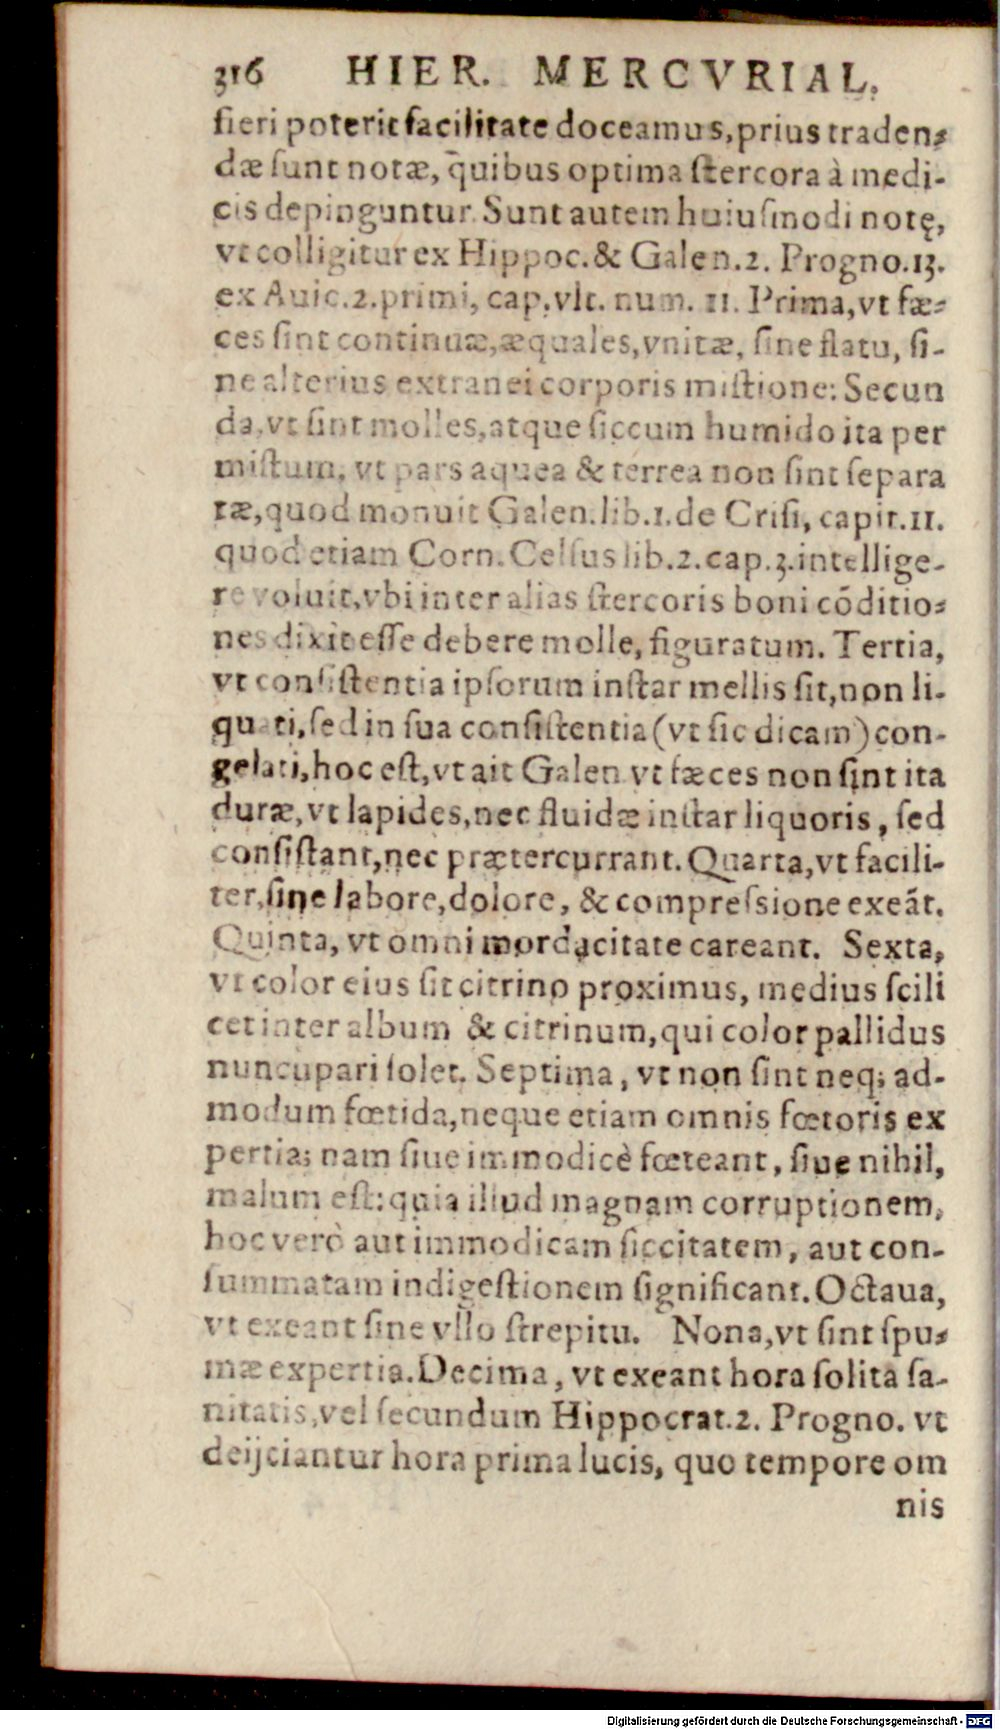 316 HIER. MERCVRIAL.
fieri poterit facilitate doceamus, prius traden-
dæ ſunt notæ, q̃uibus optima ſtercora à medi-
cis depinguntur. Sunt autem huiuſmodi notę,
vt colligitur ex Hippoc. & Galen. 2. Progno. 13.
ex Auic. 2. primi, cap. vlt. num. 11. Prima, vt fæ-
ces ſint continuæ, æquales, vnitæ, ſine flatu, ſi-
ne alterius extranei corporis miſtione: Secun
da, vt ſint molles, atque ſiccum humido ita per
miſtum, vt pars aquea & terrea non ſint ſepara
tæ, quod monuit Galen. lib. 1. de Criſi, capit. 11.
quod etiam Corn. Celſus lib. 2. cap. 3. intellige-
re voluit, vbi inter alias ſtercoris boni cõditio-
nes dixit eſſe debere molle, figuratum. Tertia,
vt conſiſtentia ipſorum inſtar mellis ſit, non li-
quati, ſed in ſua conſiſtentia (vt ſic dicam) con-
gelati, hoc eſt, vt ait Galen. vt fæces non ſint ita
duræ, vt lapides, nec fluidæ inſtar liquoris, ſed
conſiſtant, nec prætercurrant. Quarta, vt facili-
ter, ſine labore, dolore, & compreſsione exeãt.
Quinta, vt omni mordacitate careant. Sexta,
vt color eius ſit citrino proximus, medius ſcili
cet inter album & citrinum, qui color pallidus
nuncupari ſolet. Septima, vt non ſint neq; ad-
modum fœtida, neque etiam omnis fœtoris ex
pertia; nam ſiue immodicè fœteant, ſiue nihil,
malum eſt: quia illud magnam corruptionem,
hoc verò aut immodicam ſiccitatem, aut con-
ſummatam indigeſtionem ſignificant. Octaua,
vt exeant ſine vllo ſtrepitu. Nona, vt ſint ſpu-
mæ expertia. Decima, vt exeant hora ſolita ſa-
nitatis, vel ſecundum Hippocrat. 2. Progno. vt
deijciantur hora prima lucis, quo tempore om
nis
Digitalisierung gefördert durch die Deutsche Forschungsgemeinschaft - DFG